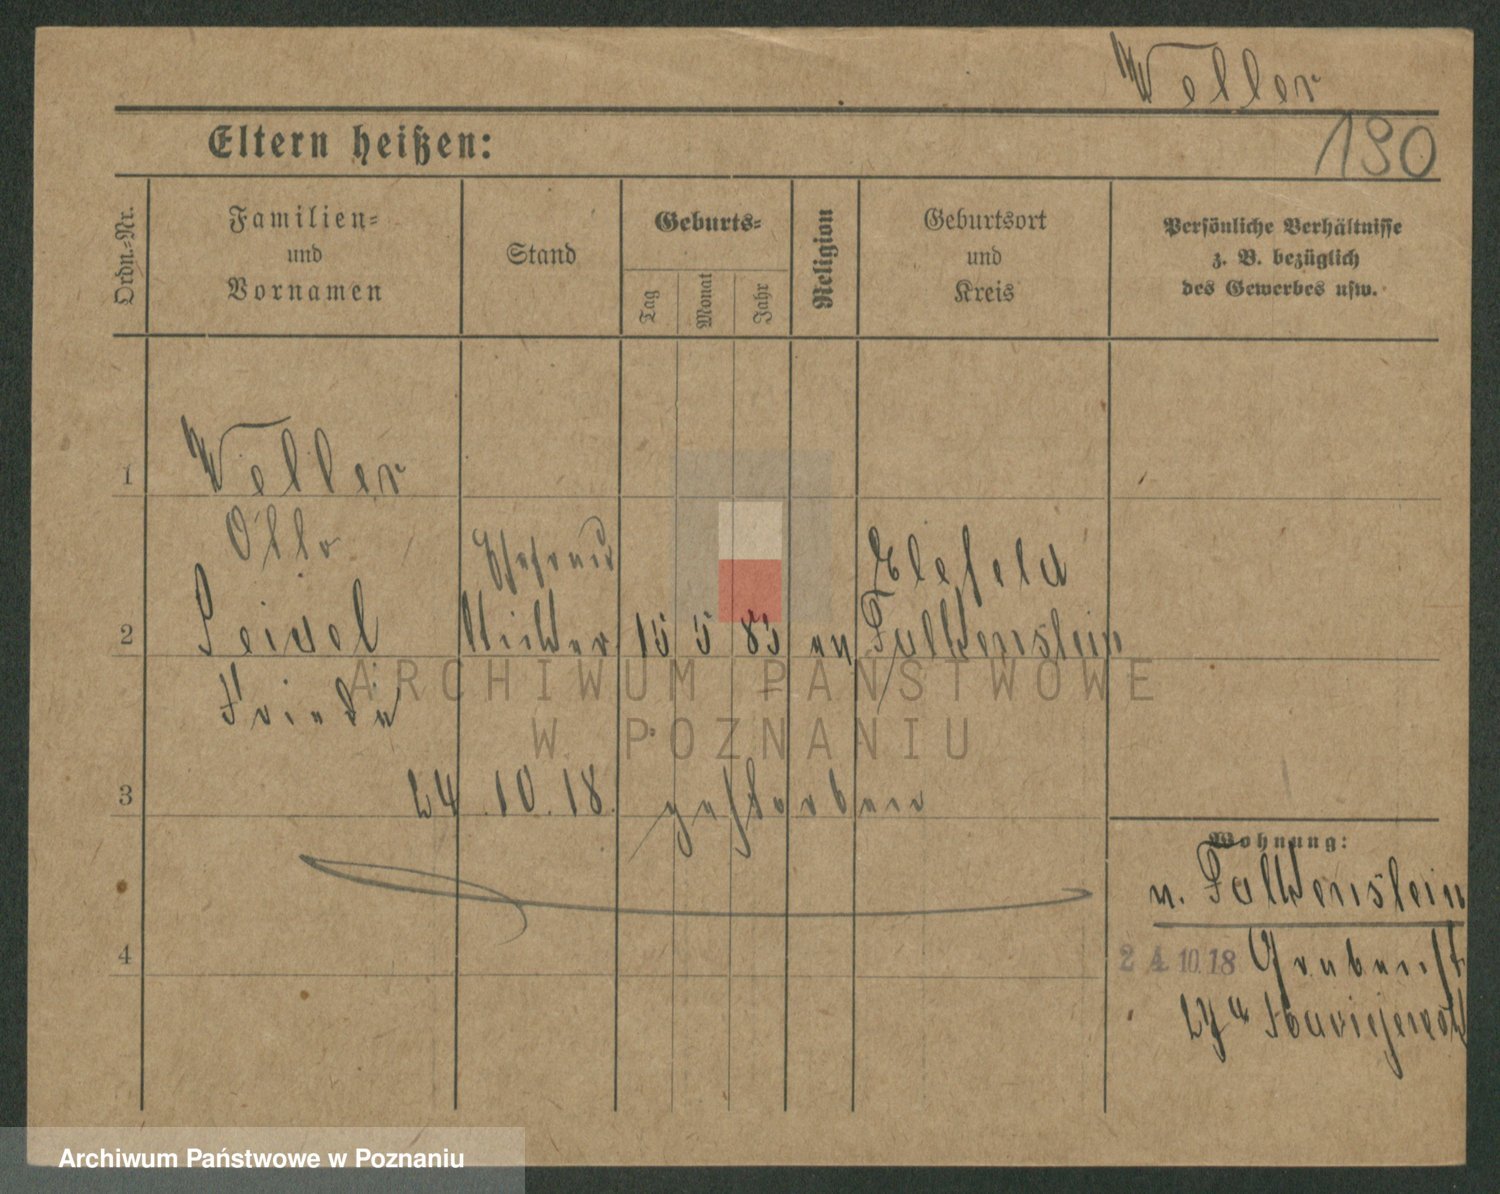 Weller
190
Eltern heißen:
Ordn.-Nr.
Familien-
und
Vornamen
Stand
Geburts-
Tag
Monat
Jahr
Religion
Geburtsort
und
Kreis
Persönliche Verhältnisse
z. B. bezüglich
des Gewerbes usw.
1
Weller
Otto
Ehefrau
Elefeld
2
Seidel
15 5 85 ev Falkenstein
Frieda
3
24.10.18. gestorben
Wohnung:
v. Falkenstein
24.10.18 Grabenstr
4
ARCHIWUM PAŃSTWOWE
W POZNANIU
Archiwum Państwowe w Poznaniu